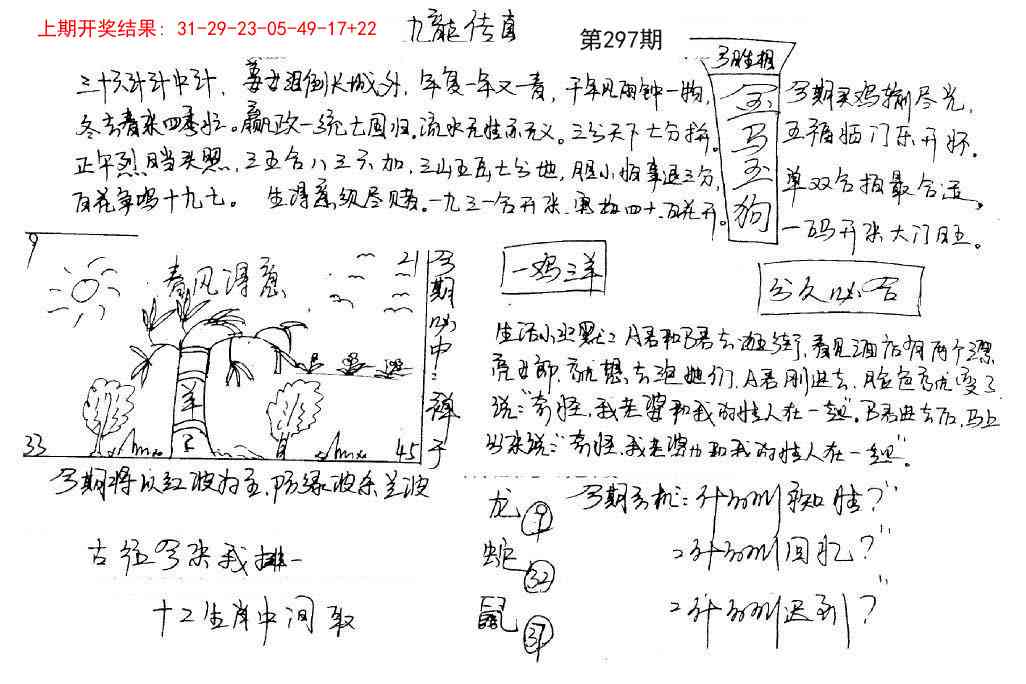 上期开奖结果: 31-29-23-05-49-17+22
九龍传真
第297期
三十六计计中计，姜女泪倒长城外，年复一年又一春，千年见两钟一物，
冬去春来四季忙。嬴政一统七国归。流水无性亦无义。三分天下七分拼。
正午烈日当头照，三五合八三六加，三山五岳七分地，胆小怕事退三分，
百花争鸣十九七。生得意须尽赌。一九三一合开来 四十 百花开。
今期生相
金
马
玉
狗
今期买鸡输尽光，
五福临门乐开怀。
单双合拍最合适，
一码开来大门旺。
9
21
春风得意
羊
33
45
今期必中：祥子
一鸡三羊
分久必合
生活小 : A君和B君去逛街，看见酒店有两个漂
亮女郎，就想去泡她们，A君刚进去，脸色就变了
说:"奇怪，我老婆和我的情人在一起"。B君进去后，马上
出来说:"奇怪，我老婆也和我的情人在一起"
今期将以红波为主，防绿波杀兰波
龙 9
蛇 32
鼠 37
今期玄机: 什么时 ?"
二什么时 回忆?"
二什么时 迟到?"
古往今来我排一
十二生肖中间取